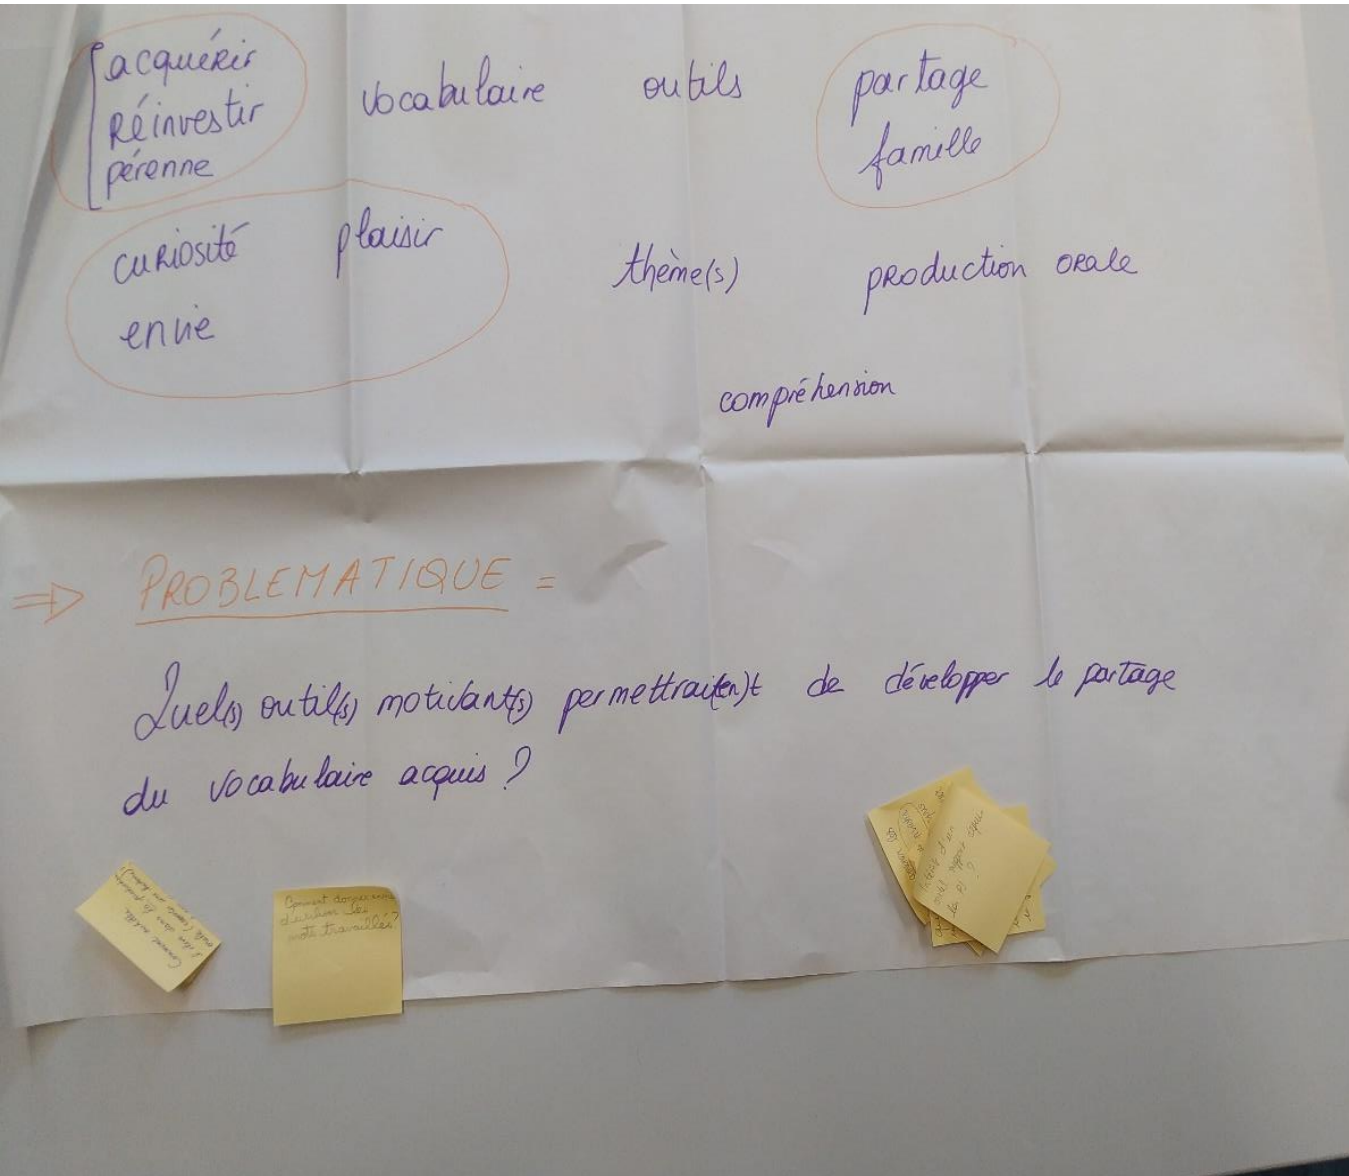 acquérir
réinvestir
pérenne
vocabulaire
outils
partage
famille
curiosité plaisir
envie
thème(s)
production orale
compréhension
⇒ PROBLEMATIQUE =
Quel(s) outil(s) motivant(s) permettrai(en)t de développer le partage
du vocabulaire acquis ?
Comment donner envie
d'utiliser les
mots travaillés ?